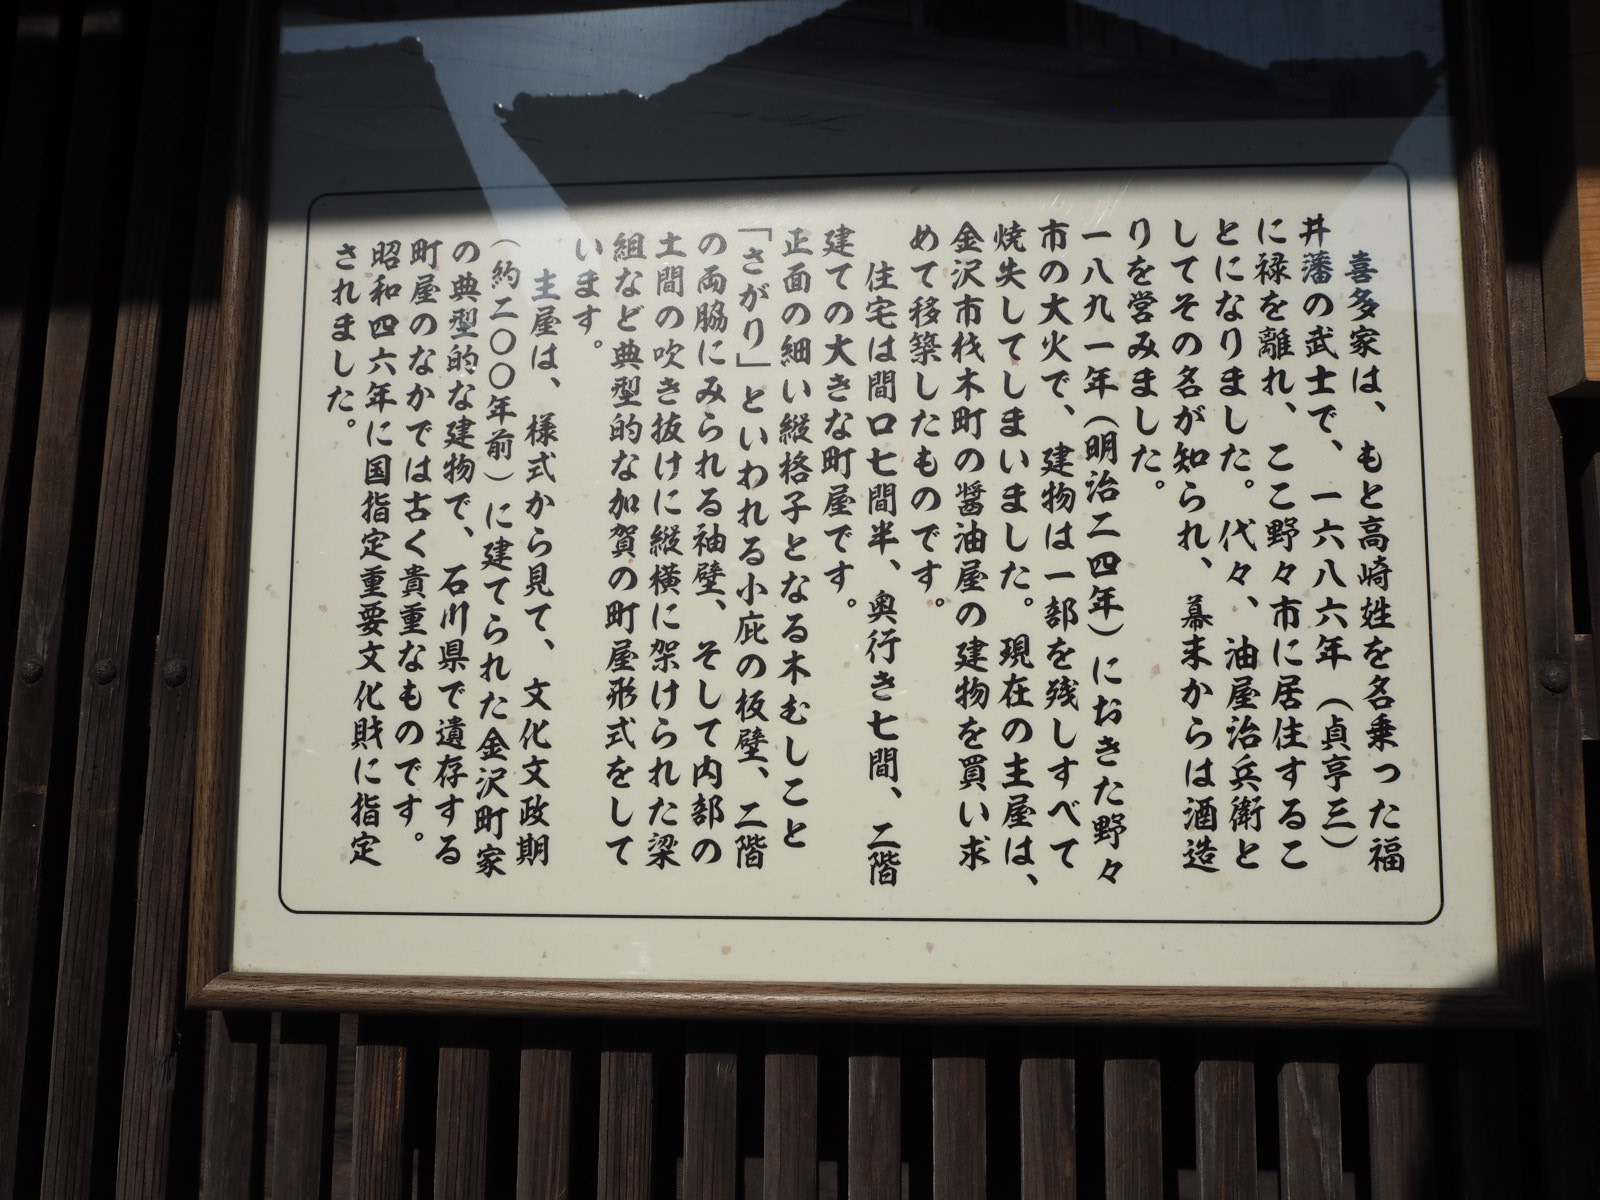 喜多家は、もと高崎姓を名乗った福
井藩の武士で、一六八六年（貞亨三）
に禄を離れ、ここ野々市に居住するこ
とになりました。代々、油屋治兵衛と
してその名が知られ、幕末からは酒造
りを営みました。
一八九一年（明治二四年）におきた野々
市の大火で、建物は一部を残しすべて
焼失してしまいました。現在の主屋は、
金沢市材木町の醤油屋の建物を買い求
めて移築したものです。
住宅は間口七間半、奥行き七間、二階
建ての大きな町屋です。
正面の細い縦格子となる木むしこと
「さがり」といわれる小庇の板壁、二階
の両脇にみられる袖壁、そして内部の
土間の吹き抜けに縦横に架けられた梁
組など典型的な加賀の町屋形式をして
います。
主屋は、様式から見て、文化文政期
（約二〇〇年前）に建てられた金沢町家
の典型的な建物で、石川県で遺存する
町屋のなかでは古く貴重なものです。
昭和四六年に国指定重要文化財に指定
されました。